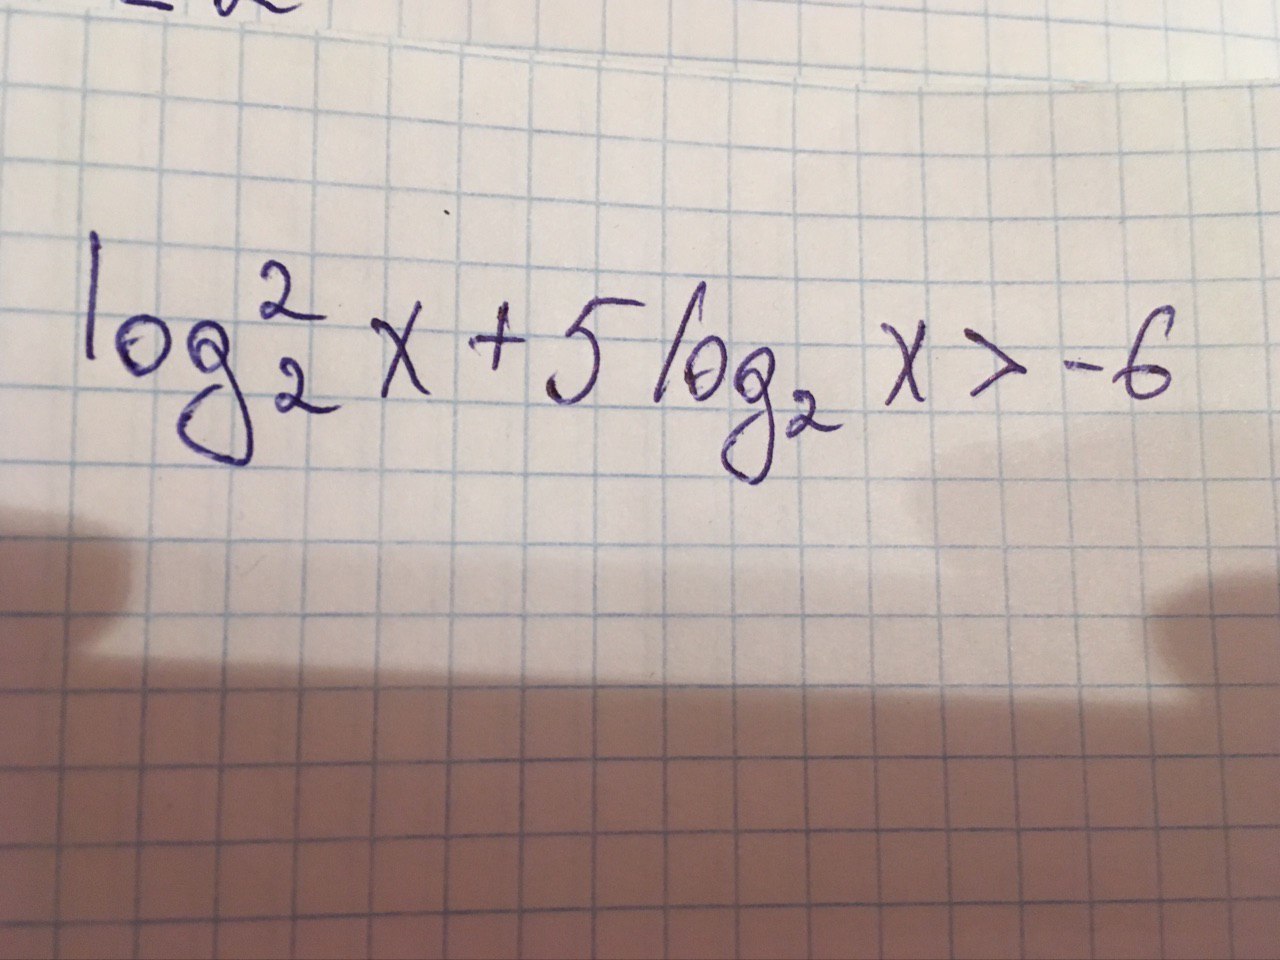 log₂² x + 5 log₂ x > -6